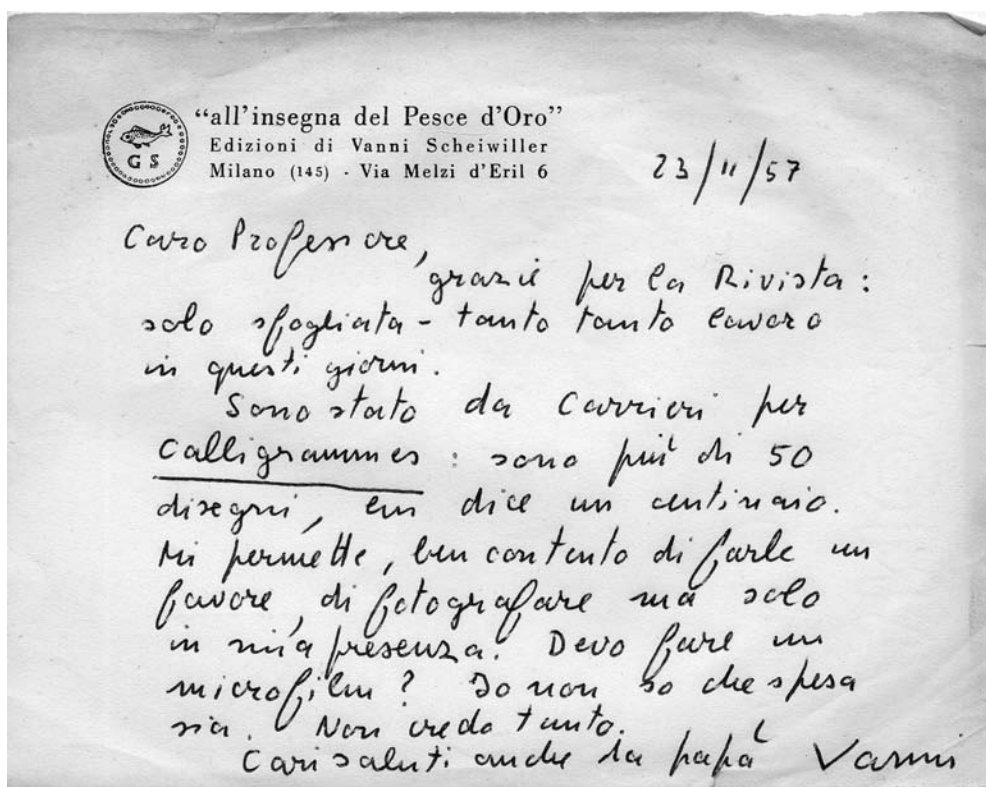 "all'insegna del Pesce d'Oro"
Edizioni di Vanni Scheiwiller
Milano (145) - Via Melzi d'Eril 6
G S
23/11/57
Caro Professore,
grazie per la Rivista:
solo sfogliata - tanto tanto lavoro
in questi giorni.
Sono stato da Carrieri per
Calligrammes: sono più di 50
disegni, lui dice un centinaio.
Mi permette, ben contento di farle un
favore, di fotografare ma solo
in mia presenza. Devo fare un
microfilm? Io non so che spesa
sia. Non credo tanto.
Cari saluti anche da papà Vanni